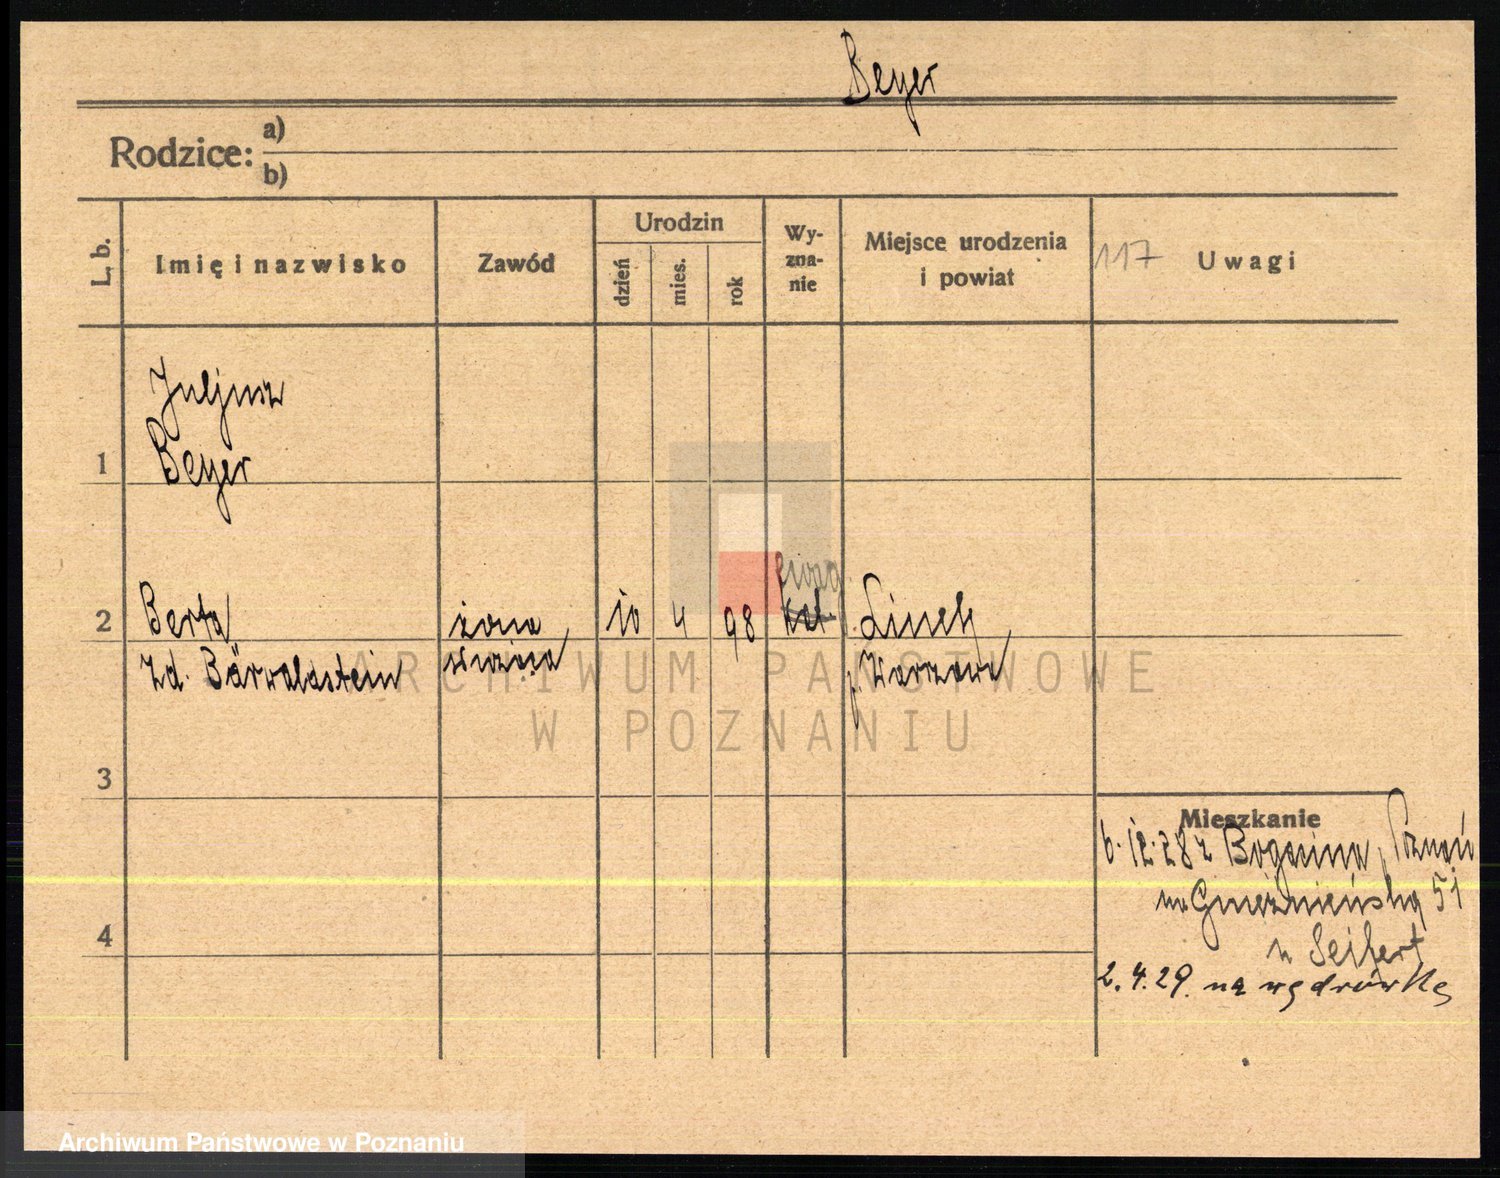 Beyer
Rodzice: a)
b)
L. b.
Imię i nazwisko
Zawód
Urodzin
dzień
mies.
rok
Wy-
zna-
nie
Miejsce urodzenia
i powiat
117 Uwagi
Juljusz
1 Beyer
ewag
2 Berta żona 10 4 98 kat. Linek
zd. Bärwaldstein p. Warszawa
ARCHIWUM PAŃSTWOWE
W POZNANIU
3
Mieszkanie
6.12.28 z Bogucina, Poznań
Gnieźnieńska 51
4
u Seifert
2.4.29. na wędrówkę
Archiwum Państwowe w Poznaniu